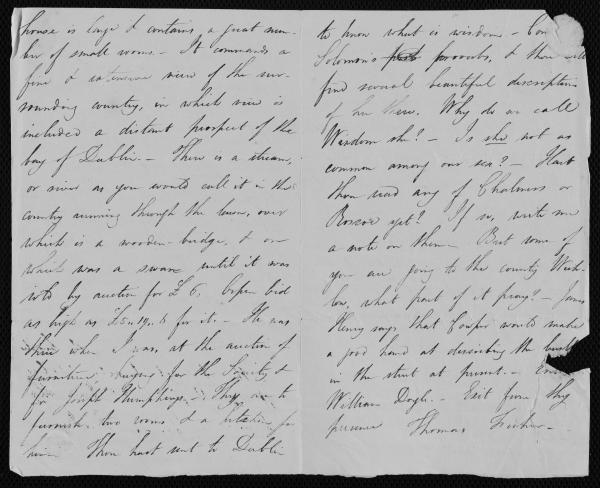 house is large & contains a great num-
ber of small rooms. - It commands a
fine & extensive view of the sur-
rounding country, in which view is
included a distant prospect of the
bay of Dublin. - There is a stream,
or river as you would call it in the
country running through the lawn, over
which is a wooden bridge, & on
which was a swan until it was
sold by auction for £6, bid
as high as £5..19..6 for it. - He was
there when I was at the auction of
furniture for the Society &
for Joseph Humphreys. - They are to
furnish two rooms & a kitchen for
him. Thou hast sent to Dublin
to know what is wisdom. - Con
Solomon's proverbs, & thou wilt
find several beautiful descriptions
of her there. Why do we call
Wisdom she? - Is she not as
common among our sex? - Hast
thou read any of Chalmers or
Roscoe yet? If so, write me
a note on them. But some of
you are going to the county Wick-
low, what part of it pray? - James
Henry says that Cowper would make
a good hand at describing the
in the street at present. -
William Doyle. - Exit from thy
presence Thomas Fisher -